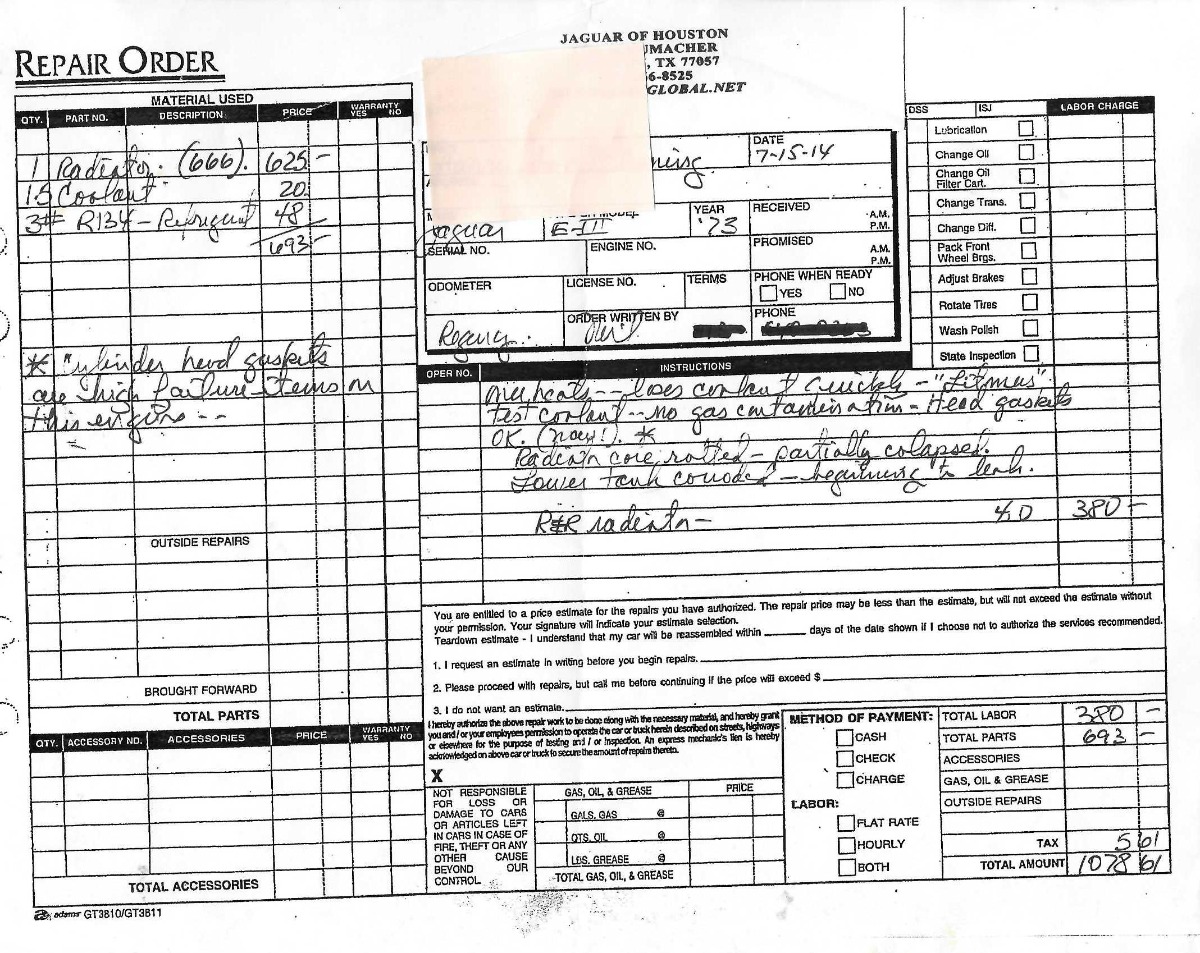 REPAIR ORDER
JAGUAR OF HOUSTON
UMACHER
, TX 77057
6-8525
GLOBAL.NET
MATERIAL USED
QTY. PART NO. DESCRIPTION PRICE WARRANTY YES NO
1 Radiator. (666). 625 -
15 Coolant 20.
3# R134 - Refrigerant 48
693 -
* Cylinder head gaskets
are high failure items on
this engine --
OUTSIDE REPAIRS
BROUGHT FORWARD
TOTAL PARTS
QTY. ACCESSORY NO. ACCESSORIES PRICE WARRANTY YES NO
TOTAL ACCESSORIES
adams GT3810/GT3811
DATE
7-15-14
Jaguar
MODEL
E-III
YEAR
'73
RECEIVED A.M. P.M.
SERIAL NO.
ENGINE NO.
PROMISED A.M. P.M.
ODOMETER
LICENSE NO.
TERMS
PHONE WHEN READY
YES NO
Regency
ORDER WRITTEN BY
PHONE
DSS ISJ LABOR CHARGE
Lubrication
Change Oil
Change Oil
Filter Cart.
Change Trans.
Change Diff.
Pack Front
Wheel Brgs.
Adjust Brakes
Rotate Tires
Wash Polish
State Inspection
OPER NO. INSTRUCTIONS
overheats -- loses coolant quickly - "Litmus"
test coolant -- no gas contamination - Head gaskets
OK. (now!). *
Radiator core rotted - partially colapsed.
Lower tank corroded - beginning to leak.
R&R radiator - 4.0 380 -
You are entitled to a price estimate for the repairs you have authorized. The repair price may be less than the estimate, but will not exceed the estimate without
your permission. Your signature will indicate your estimate selection.
Teardown estimate - I understand that my car will be reassembled within ______ days of the date shown if I choose not to authorize the services recommended.
1. I request an estimate in writing before you begin repairs.
2. Please proceed with repairs, but call me before continuing if the price will exceed $
3. I do not want an estimate.
I hereby authorize the above repair work to be done along with the necessary material, and hereby grant
you and / or your employees permission to operate the car or truck herein described on streets, highways
or elsewhere for the purpose of testing and / or inspection. An express mechanic's lien is hereby
acknowledged on above car or truck to secure the amount of repairs thereto.
X
NOT RESPONSIBLE
FOR LOSS OR
DAMAGE TO CARS
OR ARTICLES LEFT
IN CARS IN CASE OF
FIRE, THEFT OR ANY
OTHER CAUSE
BEYOND OUR
CONTROL
GAS, OIL, & GREASE PRICE
GALS. GAS @
QTS. OIL @
LBS. GREASE @
TOTAL GAS, OIL, & GREASE
METHOD OF PAYMENT:
CASH
CHECK
CHARGE
LABOR:
FLAT RATE
HOURLY
BOTH
TOTAL LABOR 380 -
TOTAL PARTS 693 -
ACCESSORIES
GAS, OIL & GREASE
OUTSIDE REPAIRS
TAX 5 61
TOTAL AMOUNT 1078 61